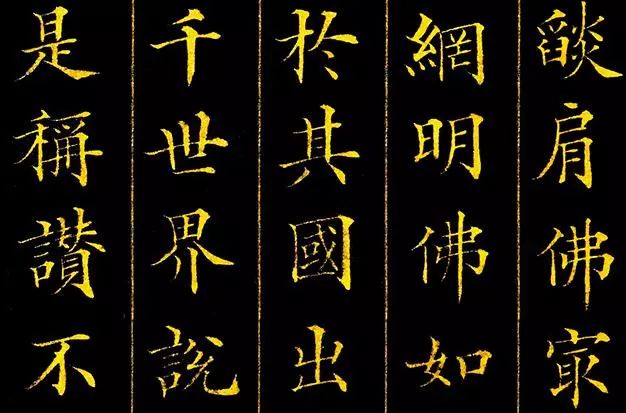 燄肩佛㝡
網明佛如
於其國出
千世界說
是稱讃不